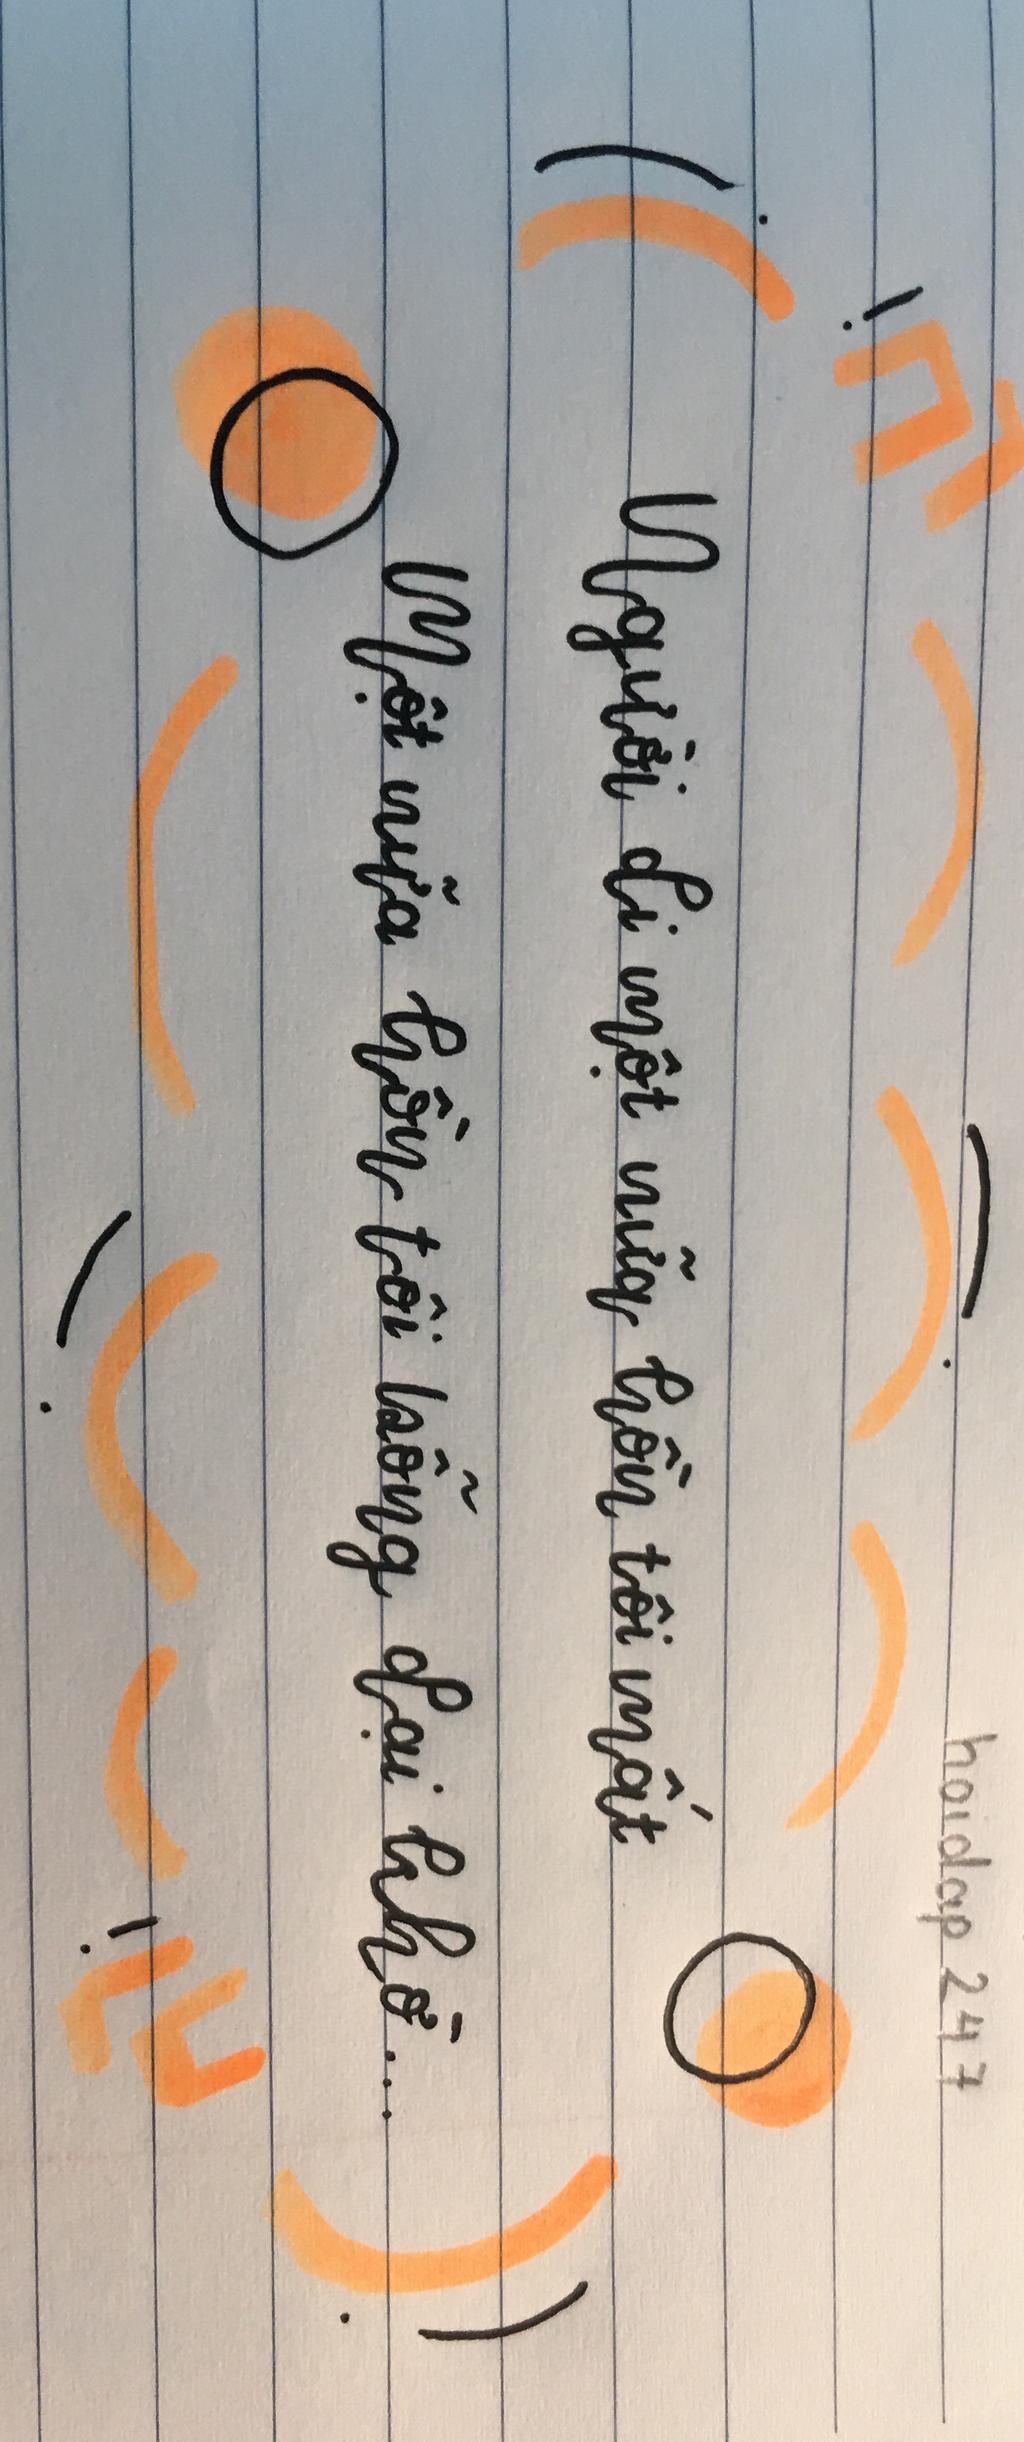 hoidap 247
Người đi một nữa hồn tôi mất
Một nữa hồn tôi bỗng dại khờ...